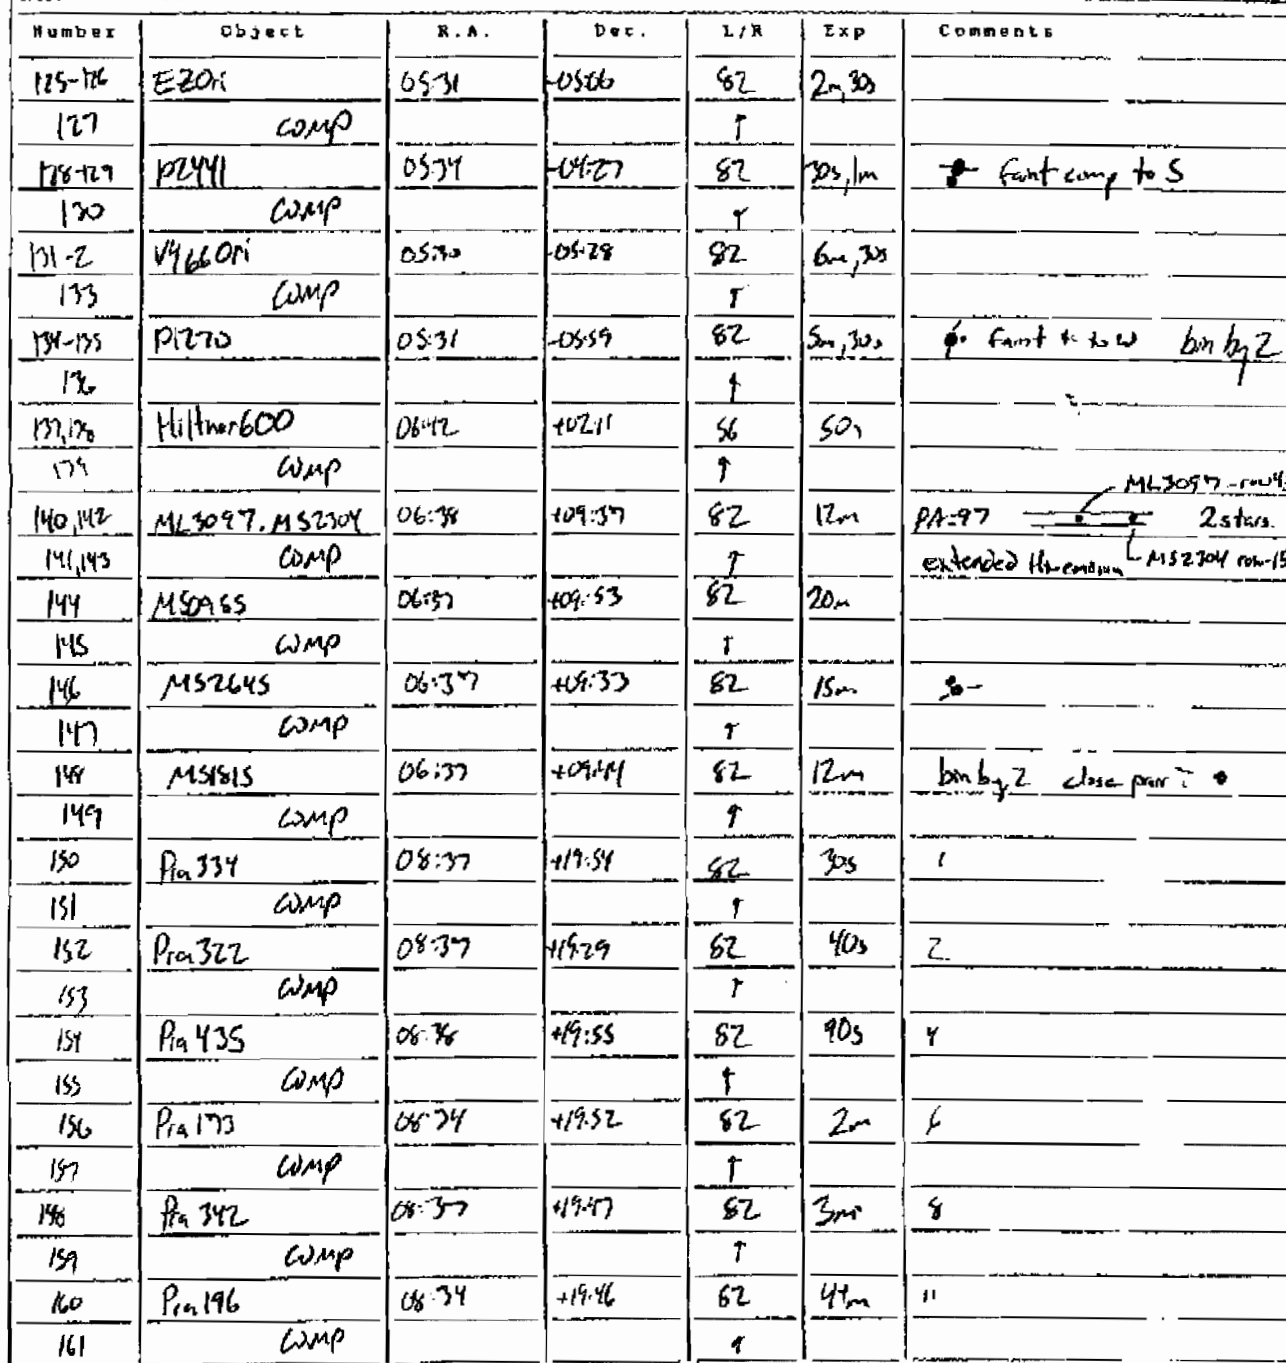 Number Object R.A. Dec. L/R Exp Comments
125-126 EZOri 05:31 -05:06 82 2m,30s
127 comp ↑
128-129 P2441 05:34 -04:27 82 30s,1m faint comp to S
130 comp ↑
131-2 V466Ori 05:30 -05:28 82 6m,30s
133 comp ↑
134-135 P1270 05:31 -05:59 82 5m,30s faint * to W bin by 2
136 ↑
137,138 Hiltner600 06:42 +02:11 56 50s
139 comp ↑
ML3097-row
140,142 ML3097.MS2304 06:38 +09:37 82 12m PA=97 2stars.
141,143 comp ↑ extended Hα emission MS2304 row-15
144 MS0965 06:37 +09:53 82 20m
145 comp ↑
146 MS2645 06:37 +09:33 82 15m
147 comp ↑
148 MS1815 06:37 +09:44 82 12m bin by 2 close pair?
149 comp ↑
150 Pra334 08:37 +19:54 82 30s 1
151 comp ↑
152 Pra322 08:37 +19:29 82 40s 2
153 comp ↑
154 Pra435 08:38 +19:55 82 90s 4
155 comp ↑
156 Pra173 08:34 +19:52 82 2m 6
157 comp ↑
158 Pra342 08:37 +19:47 82 3m 8
159 comp ↑
160 Pra196 08:34 +19:46 82 4m 11
161 comp ↑